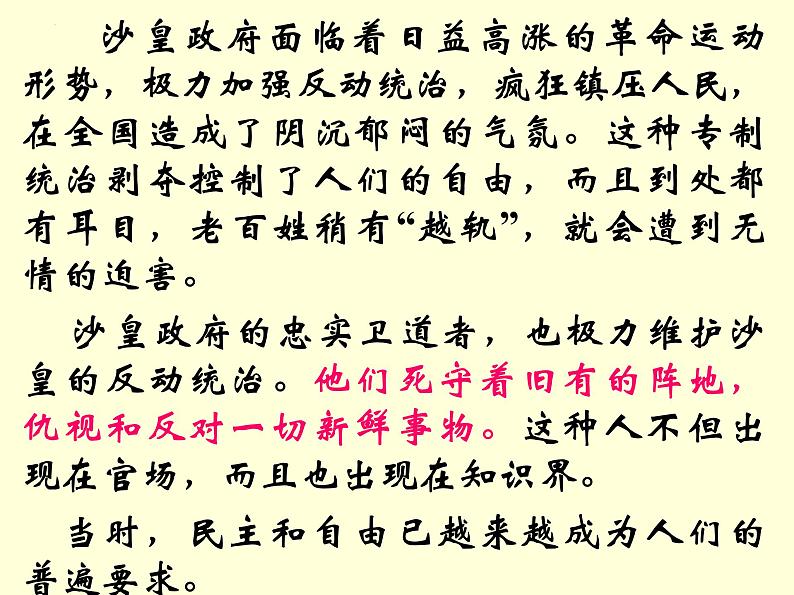 沙皇政府面临着日益高涨的革命运动
形势，极力加强反动统治，疯狂镇压人民，
在全国造成了阴沉郁闷的气氛。这种专制
统治剥夺控制了人们的自由，而且到处都
有耳目，老百姓稍有“越轨”，就会遭到无
情的迫害。
沙皇政府的忠实卫道者，也极力维护沙
皇的反动统治。他们死守着旧有的阵地，
仇视和反对一切新鲜事物。这种人不但出
现在官场，而且也出现在知识界。
当时，民主和自由已越来越成为人们的
普遍要求。